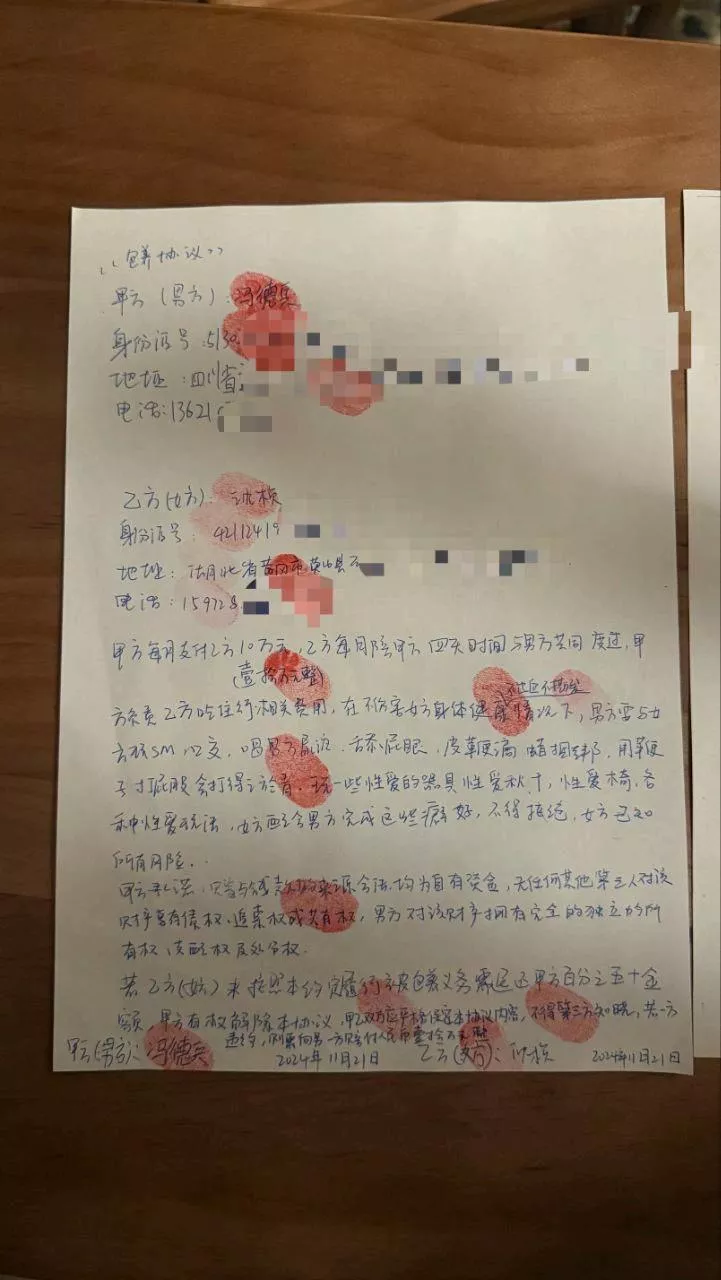 《包养协议》
甲方（男方）：冯德兵
身份证号：5130
地址：四川省
电话：13621
乙方（女方）：
身份证号：42112419
地址：湖北省黄冈市英山县
电话：159728
甲方每月支付乙方10万元，乙方每月陪甲方四天时间与男方共同度过，甲
（壹拾万元整）
方负责乙方吃住行相关费用，在不伤害女方身体健康情况下，男方要与女
方玩SM，口交，喝男方尿液，舔屁眼，皮鞭 捆绑，用鞭
子打屁股会打得，玩一些性爱的器具性爱秋千，性爱椅，各
种性爱玩法，女方配合男方完成这些癖好，不得拒绝，女方已知
所有风险。
甲方承诺，赠与钱款的来源合法均为自有资金，无任何其他第三人对该
财产享有债权、追索权或共有权，男方对该财产拥有完全的独立的所
有权，支配权及处分权。
若乙方（女方）未按照本约定履行被包养义务需退还甲方百分之五十金
额，甲方有权解除本协议，甲乙双方应严格保守本协议内容，不得第三方知晓，若一方
违约，则需向另一方赔付人民币壹拾万元整
甲方（男方）：冯德兵 2024年11月21日 乙方（女方）： 2024年11月21日